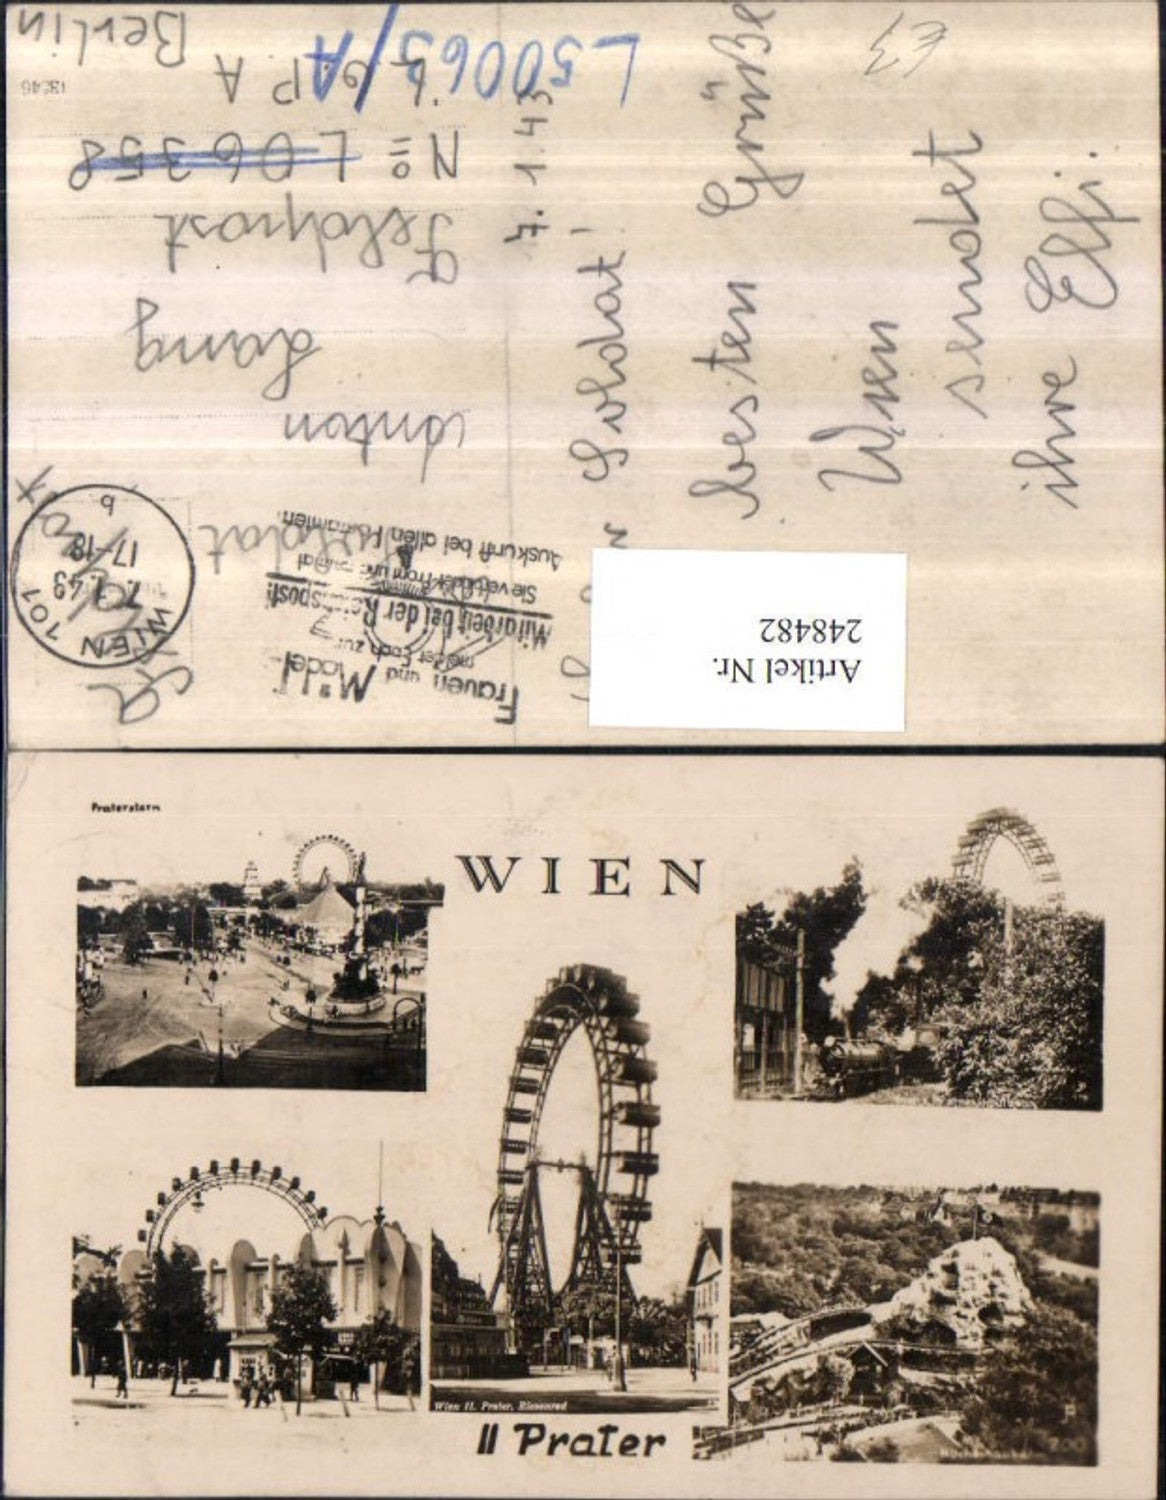 Frauen und Mädel
meldet Euch zur
Mitarbeit bei der Reichspost!
Auskunft bei allen Postämtern
WIEN 101
7.1.43
17-18
b
Soldat
Anton
Lang
Feldpost
Nº L06358
L50065/A
L.G.P.A
Berlin
7.1.43
Soldat!
besten Grüße
Wien
sendet
ihre Elfi.
Artikel Nr.
248482
Praterstern
WIEN
Wien II. Prater, Riesenrad
II Prater